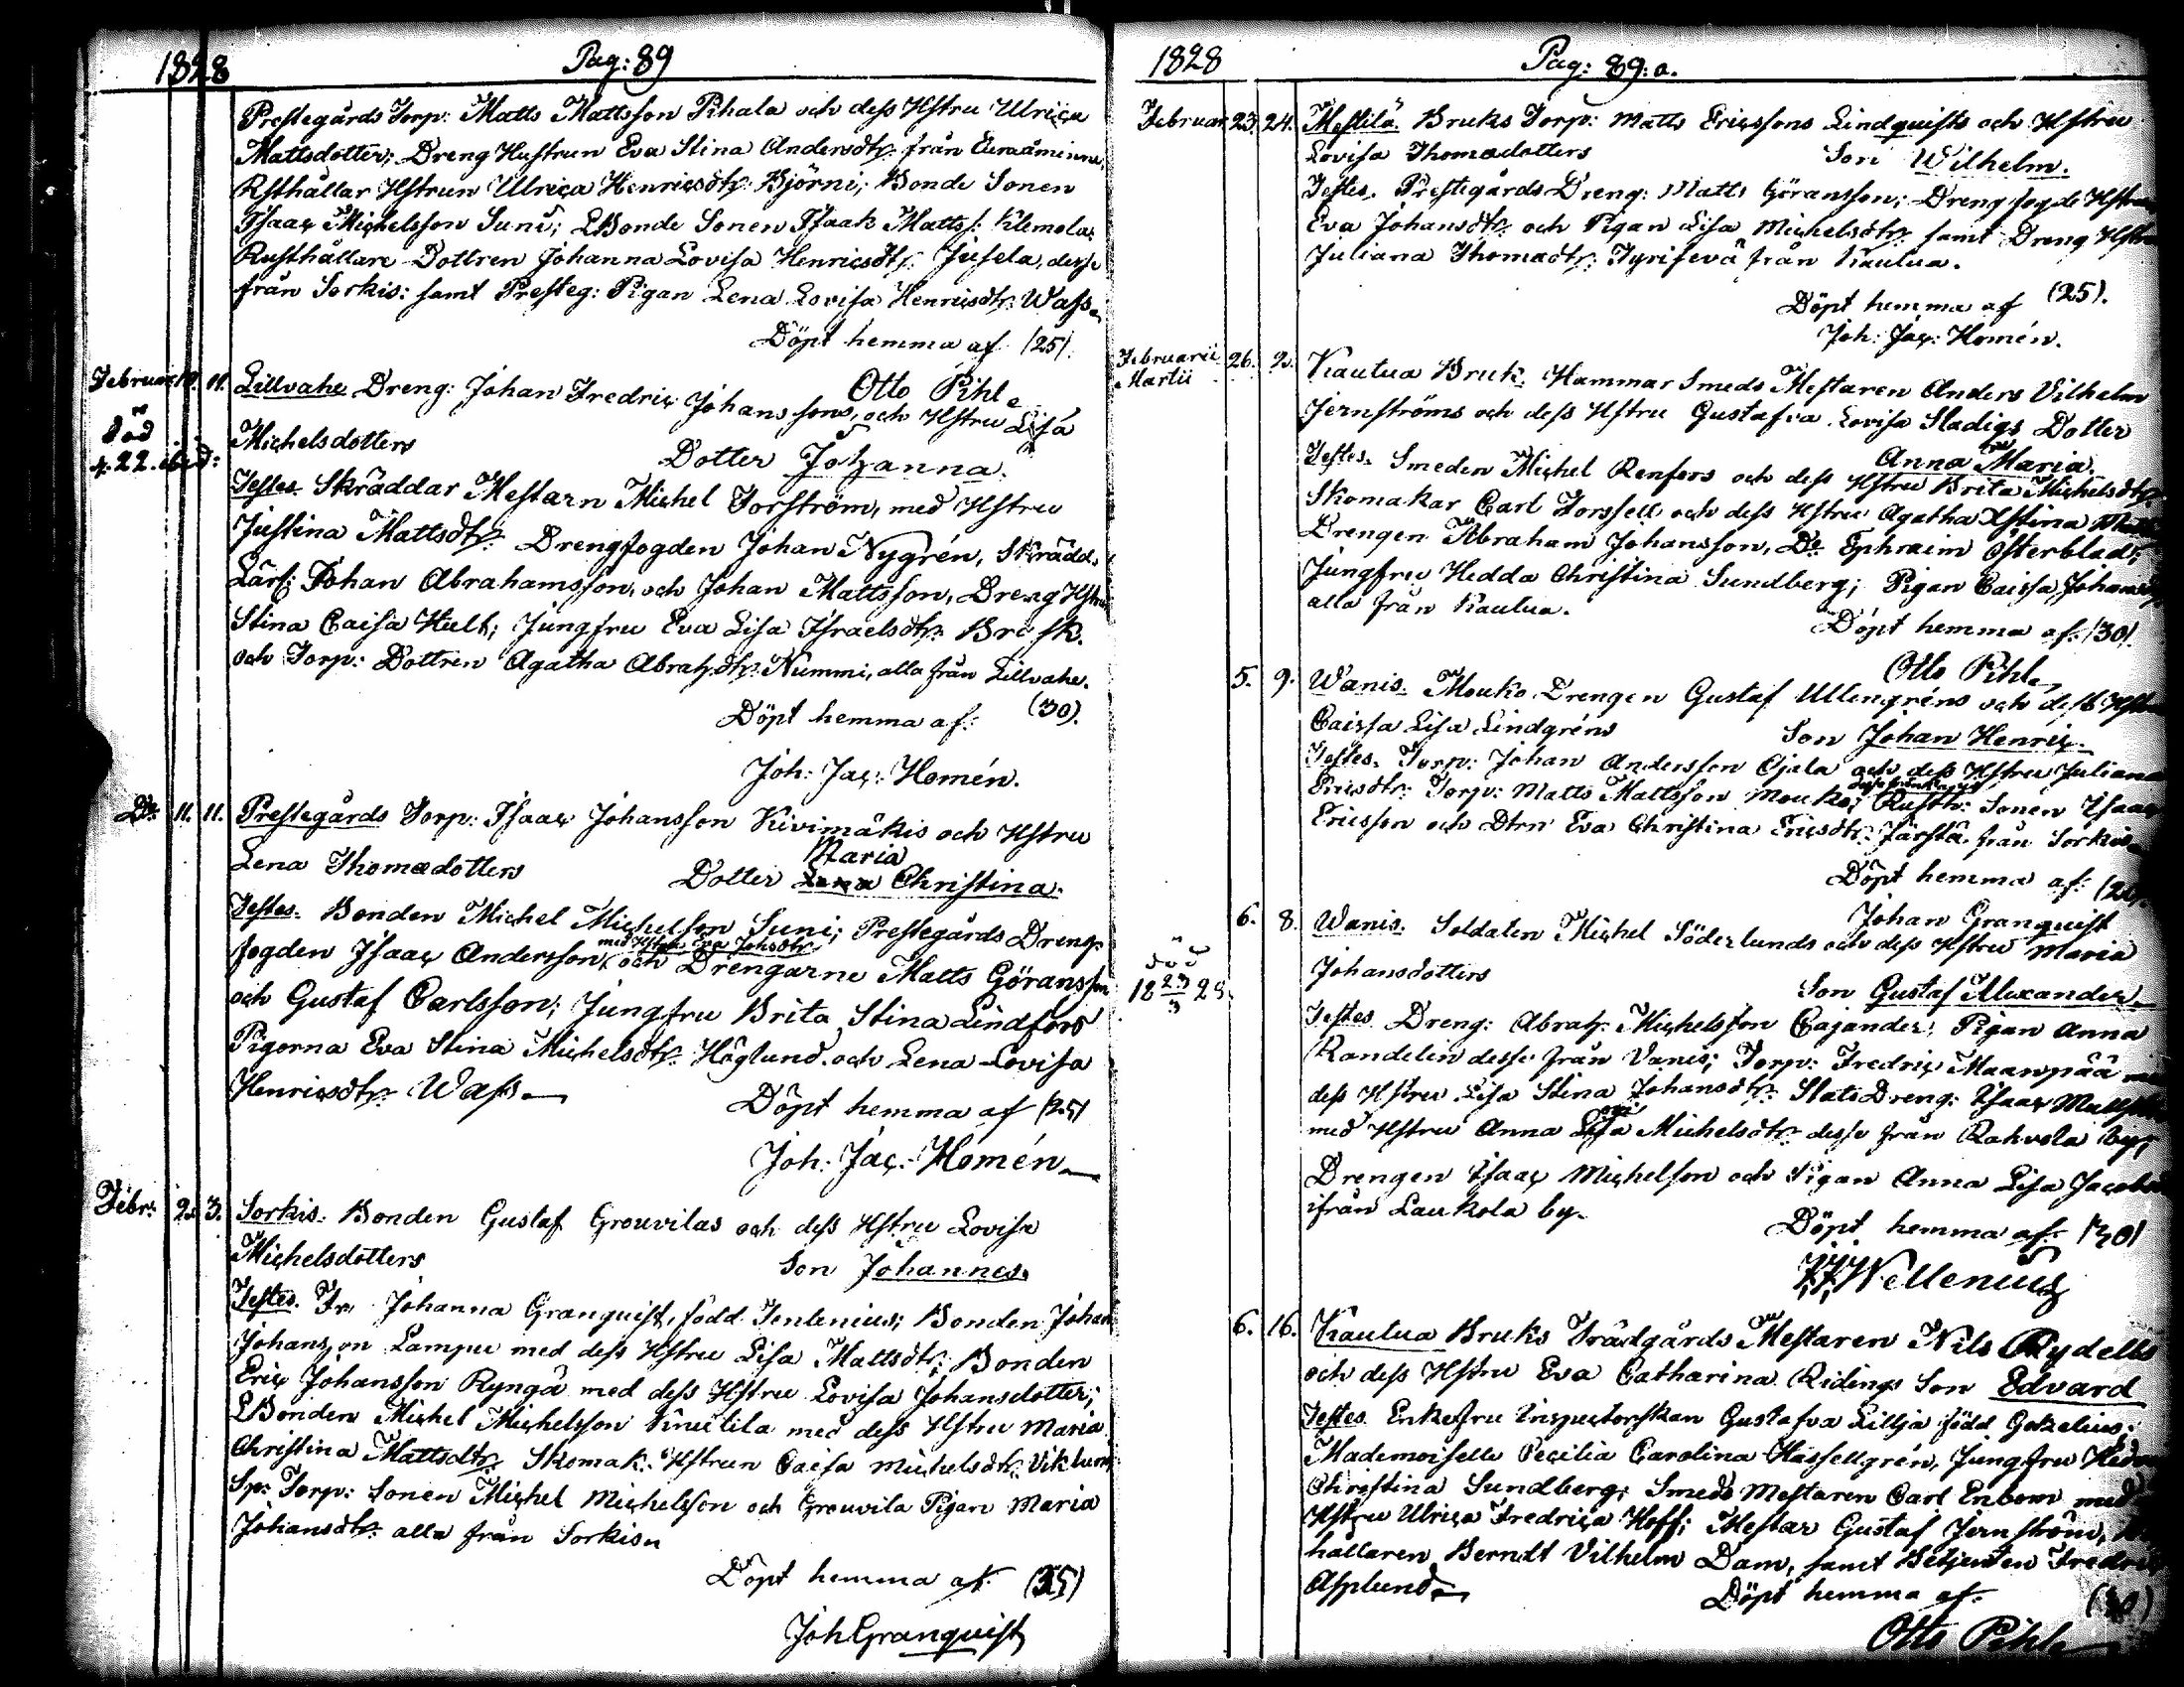 1828 Pag: 89
Prestegårds Torp: Matts Mattsson Pihala och dess Hstru Ulrica
Mattsdotter; Dreng Hustrun Eva Stina Andersdtr. från Euraåminne,
Rsthållar Hstrun Ulrica Henricsdtr. Björni; Bonde Sonen
Isaac Michelsson Suni; LBonde Sonen Isaak Matts: Klemola;
Rusthållare Dottren Johanna Lovisa Henricsdtr. Jusela, desse
från Sorkis: samt Presteg: Pigan Lena Lovisa Henricsdtr. Wass.
Döpt hemma af (25).
Otto Pihl
Februar 10. 11. Lillvahe Dreng: Johan Fredric Johanssons, och Hstru Lisa
död Michelsdotters Dotter Johanna.
d. 22. ibid:
Testes. Skräddar Mestarn Michel Torström, med Hstru
Justina Mattsdtr. Drengfogden Johan Nygrén, Skrädd.
Lärl: Johan Abrahamsson, och Johan Mattsson, Dreng Hstru
Stina Caisa Hult; Jungfru Eva Lisa Israelsdtr. Brask.
och Torp: Dottren Agatha Abrahdtr. Nummi, alla från Lillvahe.
Döpt hemma af: (30).
Joh: Jac: Homén.
Do. 11. 11. Prestegårds Torp: Isaac Johansson Kivimäkis och Hstru
Maria
Lena Thomædotters Dotter Lena Christina.
Testes. Bonden Michel Michelson Suni; Prestegårds Dreng-
med Hstru Eva Johsdtr.
fogden Isaac Andersson, och Drengarne Matts Göransson
och Gustaf Carlsson; Jungfru Brita Stina Lindfors
Pigorna Eva Stina Michelsdtr. Höglund och Lena Lovisa
Henricsdtr. Wass. Döpt hemma af (25)
Joh: Jac: Homén
Febr: 2. 3. Sorkis. Bonden Gustaf Grouvilas och dess Hstru Lovisa
Michelsdotters Son Johannes.
Testes. Fr. Johanna Granquist, född Tenlenius; Bonden Johan
Johansson Lampu med dess Hstru Lisa Mattsdtr; Bonden
Eric Johansson Ryngä med dess Hstru Lovisa Johansdotter;
LBonden Michel Michelsson Knuutila med dess Hstru Maria
Christina Mattsdtr. Skomak: Hstrun Caisa Michelsdtr. Viklund
Sp: Torp: Sonen Michel Michelsson och Grouvila Pigan Maria
Johansdtr. alla från Sorkis.
Döpt hemma af (35)
Joh Granquist
1828 Pag: 89:a.
Februar. 23. 24. Mestilä Bruks Torp: Matts Ericssons Lindquists och Hstru
Lovisa Thomædotters Son Wilhelm.
Testes. Prestegårds Dreng: Matts Göransson; Drengfogde Hstrun
Eva Johansdtr. och Pigan Lisa Michelsdtr. samt Dreng Hstrun
Juliana Thomædtr. Tyrisevä från Kautua.
Döpt hemma af (25).
Joh: Jac: Homén.
Februarii 26. 2. Kautua Bruk. Hammar Smeds Mestaren Anders Vilhelm
Martii
Jernströms och dess Hstru Gustafva Lovisa Stadigs Dotter
Anna Maria.
Testes. Smeden Michel Renfors och dess Hstru Brita Michelsdtr.
Skomakar Carl Forssell och dess Hstru Agatha Xstina
Drengen Abraham Johansson, Do. Ephraim Österblad;
Jungfru Hedda Christina Sundberg; Pigan Caissa Johansdtr
alla från Kautua. Döpt hemma af: (30).
Otto Pihl
5. 9. Wanis. Mouko Drengen Gustaf Ullengréns och dess Hstru
Caissa Lisa Lindgréns Son Johan Henric.
Testes. Torp: Johan Andersson Ojala och dess Hstru Juliana
Ericsdtr. Torp: Matts Mattsson Mouko; Rusth: Sonen Isaac
Ericsson och Dtrn Eva Christina Ericsdtr. Järstä från Sorkis.
Döpt hemma af:
Johan Granquist
6. 8. Wanis. Soldaten Michel Söderlunds och dess Hstru Maria
död Johansdotters Son Gustaf Alexander.
18 23/3 28.
Testes Dreng: Abrah: Michelsson Cajander, Pigan Anna
Randelin desse från Vanis; Torp: Fredric Maanpää med
dess Hstru Lisa Stina Johansdtr. Stats Dreng: Isaac Mattsson
med Hstru Anna Lisa Michelsdtr. desse från Kahvola by,
Drengen Isaac Michelson och Pigan Anna Lisa Jacobs
ifrån Laukola by. Döpt hemma af: (30)
Wellenius
6. 16. Kautua Bruks Trädgårds Mestaren Nils Rydells
och dess Hstru Eva Catharina Ridings Son Edvard
Testes Enkefru Inspectorskan Gustafva Lillja född Gezelius;
Mademoiselle Cecilia Carolina Hassellgrén, Jungfru Hedda
Christina Sundberg; Smeds Mestaren Carl Enbom med
Hstru Ulrica Fredrica Hoff; Mestar Gustaf Jernström,
hållaren Berndt Vilhelm Dam, samt Betjenten Fredric
Asplund. Döpt hemma af. (30)
Otto Pihl